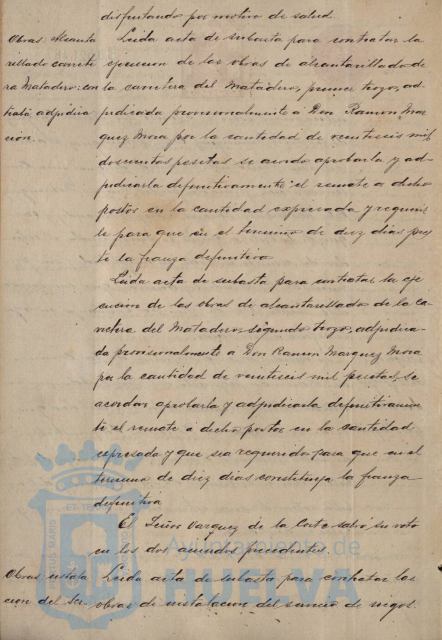 disfrutando por motivo de salud.
Obras: Alcanta Leida acta de subasta para contratar la
rillado carrete ejecucion de las obras de alcantarillado de
ra Matadero: con la carretera del Matadero, primer trozo, ad-
tinta adjudica judicada provisionalmente á Don Ramon Mar
cion. quez Mora por la cantidad de veintiseis mil
doscientas pesetas se acordo aprobarla y ad-
judicarla definitivamente el remate a dicho
postor en la cantidad expresada y requerir
le para que en el termino de diez dias pres
te la fianza definitiva
Leida acta de subasta para contratar la eje
cucion de las obras de alcantarillado de la ca
rretera del Matadero, segundo trozo, adjudica-
da provisionalmente a Don Ramon Marquez Mora
por la cantidad de veintiseis mil pesetas, se
acordó aprobarla y adjudicarla definitivamen
te el remate a dicho postor en la cantidad
expresada y que sea requerido para que en el
termino de diez dias constituya la fianza
definitiva
El Señor Vazquez de la Corte salvó su voto
en los dos acuerdos precedentes.
Obras instala Leida acta de subasta para contratar las
cion del Ser- obras de instalacion del servicio de riegos.
Ayuntamiento de
HUELVA